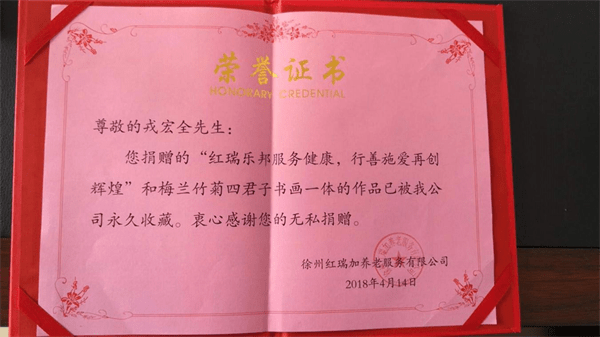 荣誉证书
HONORARY CREDENTIAL
尊敬的戎宏全先生：
您捐赠的“红瑞乐邦服务健康，行善施爱再创
辉煌”和梅兰竹菊四君子书画一体的作品已被我公
司永久收藏。衷心感谢您的无私捐赠。
徐州红瑞加养老服务有限公司
2018年4月14日